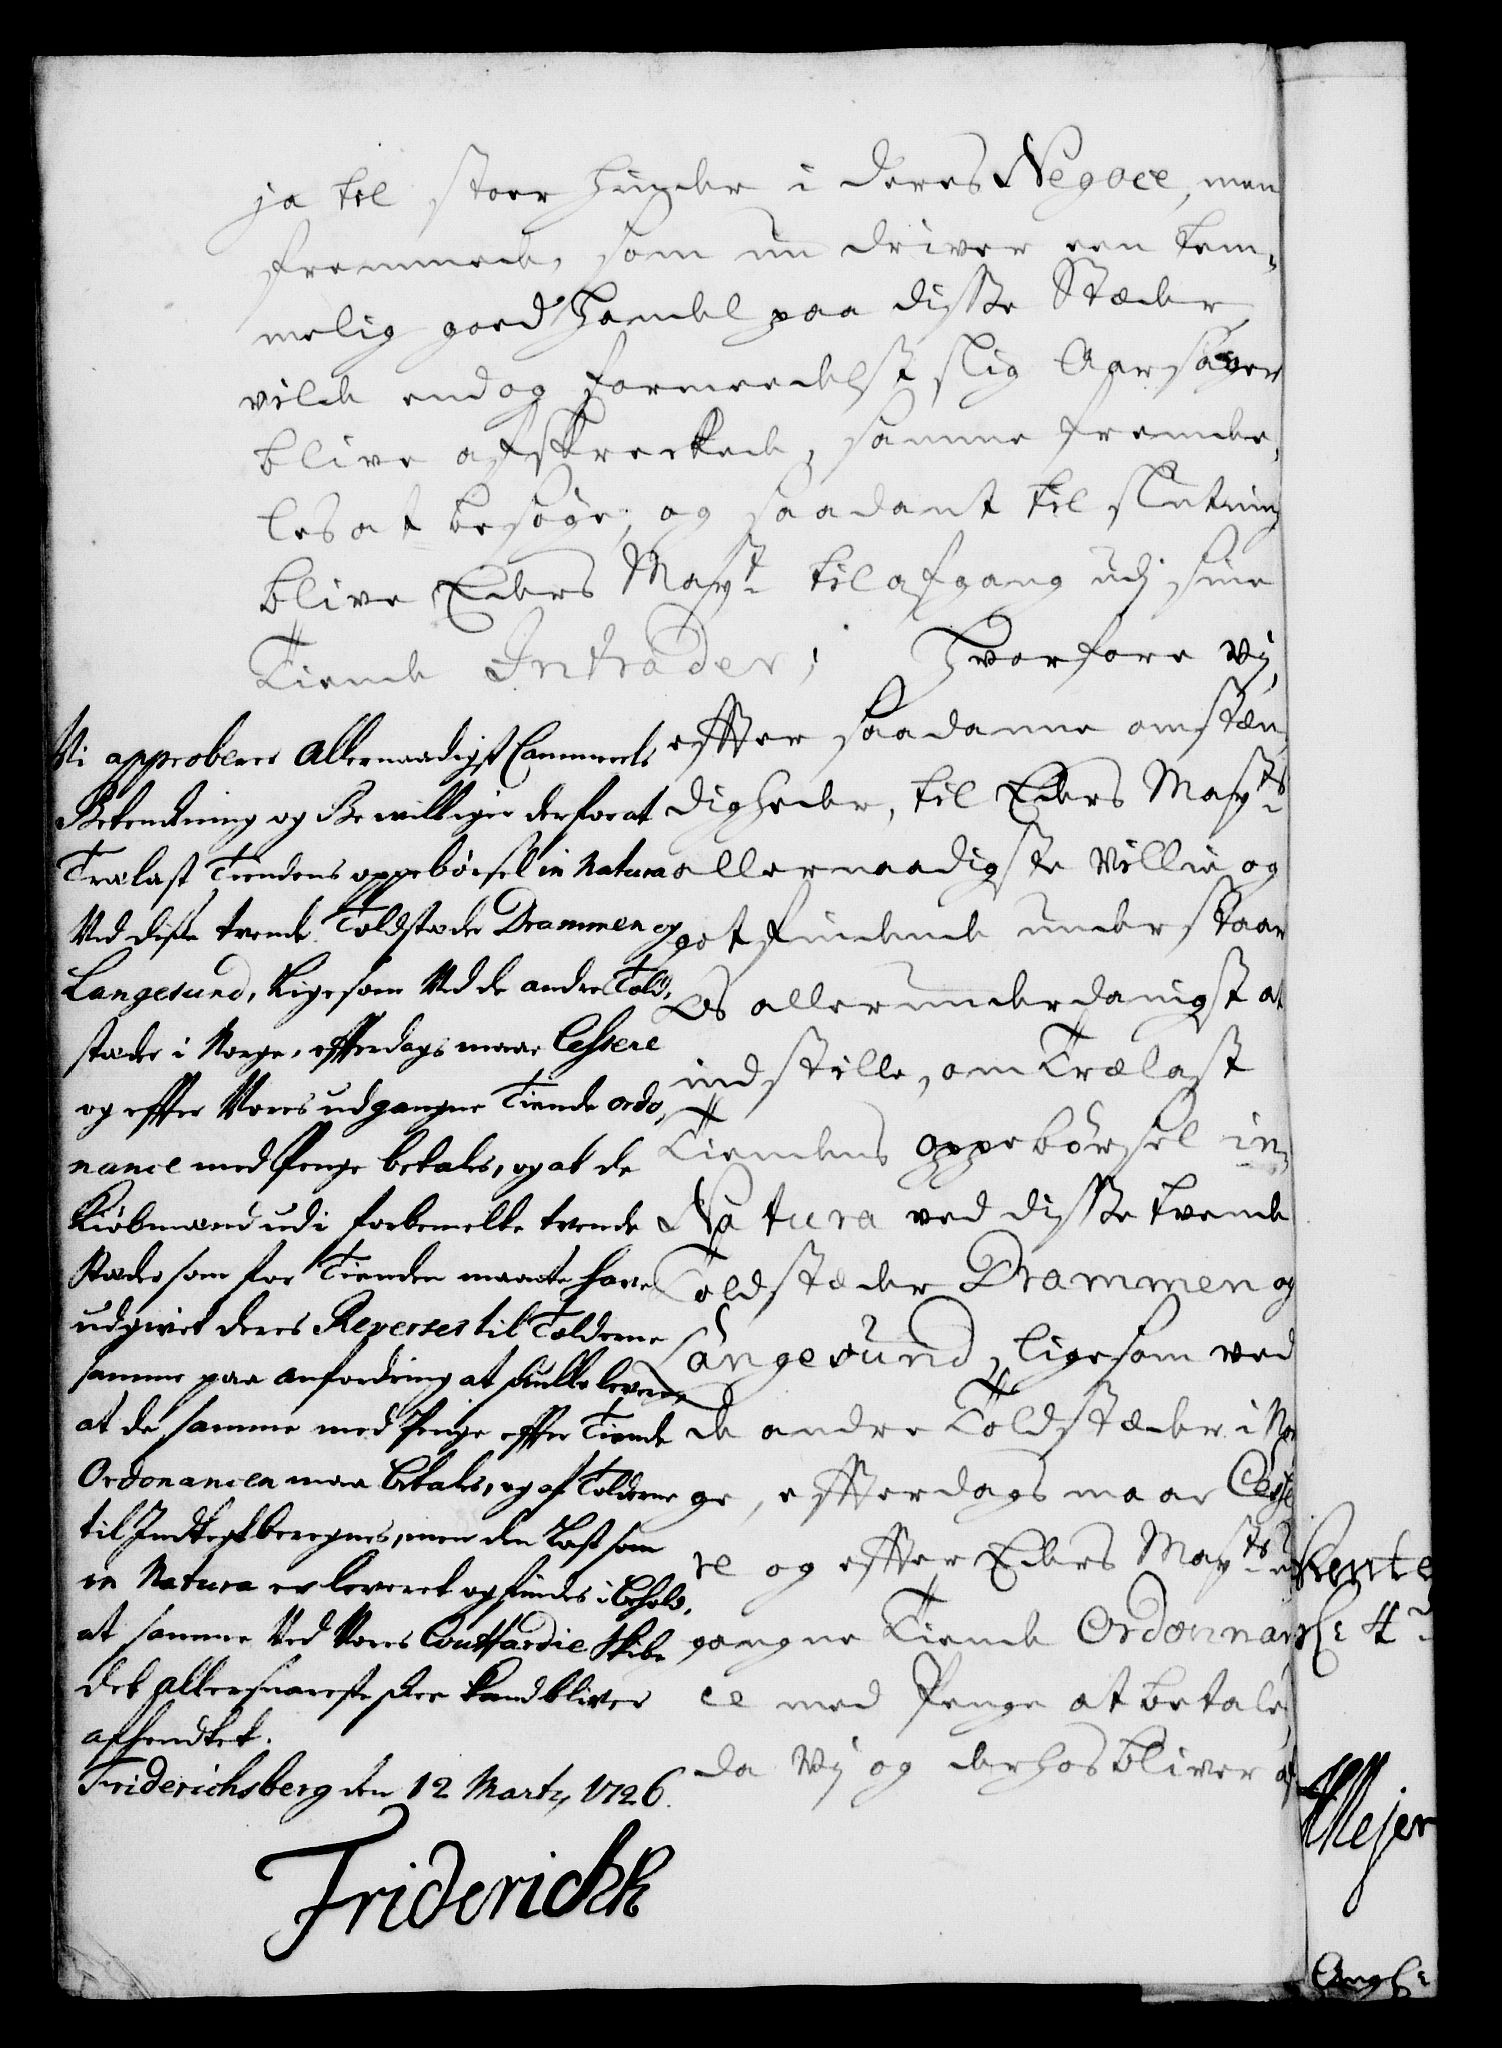 ja til stoer hinder i deres Negoce, men
fremmede, som nu driver een tem-
melig goed Handel paa disse Stæder,
vilde endog formedelst slig Aarsager
blive afskreckede, samme fremde-
les at besøge, og saadant til slutning
blive Eders Mayt: til afgang udj sine
Tiende Intrader; Hvorfore Vij,
effter saadanne omstæn-
digheder, til Eders Mayts:
allernaadigste Villie og
gotfindende understaar
Os allerunderdanigst at
indstille, om Trælast
Tiendens oppebørsel in
Natura ved disse tvende
Toldstæder Drammen og
Langesund, ligesom ved
de andre Toldstæder i Nor
ge, effterdags maae Cesse
re og effter Eders Mayts: ud
gangne Tiende Ordonnan
ce med Penge at betale,
da Vij og derhos bliver af
Vi approberer allernaadigst Cammerets
Betenckning og Bewilliger derfor at
Trælast Tiendens oppebørsel in Natura
Ved disse tvende Toldstæder Drammen og
Langesund, Ligesom Ved de andre Told-
stæder i Norge, effterdags maae Cessere
og effter Vores udgangne Tiende ordo-
nance med Penge betales, og at de
Kiöbmænd udi forbemelte tvende
Stæder som for Tienden maatte have
udgivet deres Reverses til Tolderne
samme paa anfordring at skulle levere,
at de samme med Penge effter Tiende
Ordonancen maa betales, og af Tolderne
til Indtegt beregnes, men den Last som
in Natura er leveret og findes i behold,
at samme Ved Vores Couffardie Skibe
det allersnareste skee kand bliver
afhendtet.
Friderichsberg den 12 Marty 1726.
Friderich R
Rente
Meyer